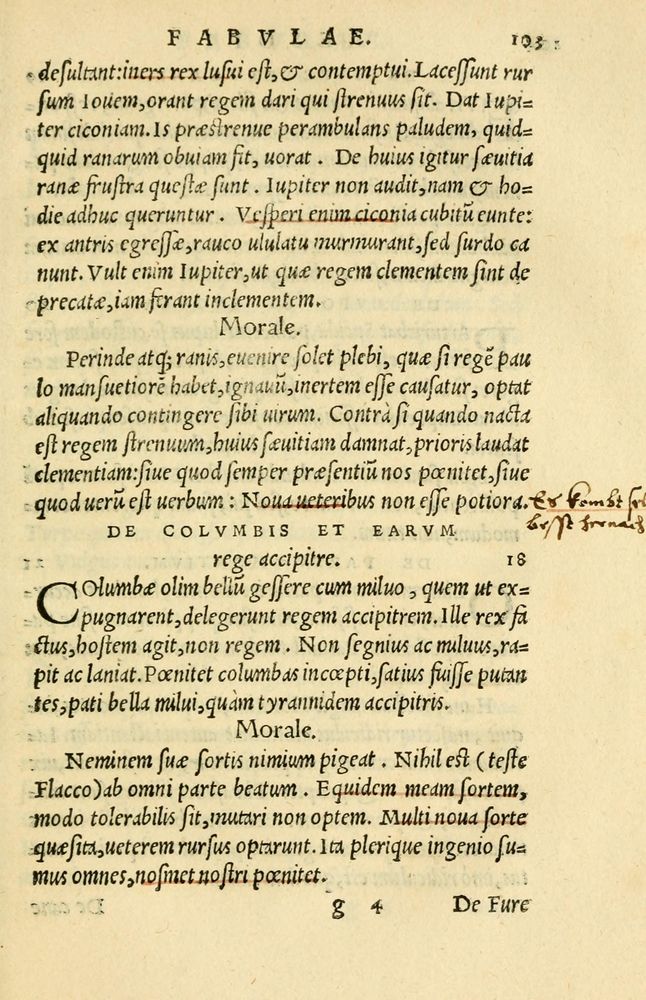 FABVLAE. 103
desultant:iners rex lusui est,& contemptui. Lacessunt rur
sum Iouem,orant regem dari qui strenuus sit. Dat Iupi=
ter ciconiam. Is præstrenue perambulans paludem, quid=
quid ranarum obuiam fit, uorat . De huius igitur sæuitia
ranæ frustra questæ sunt . Iupiter non audit, nam & ho=
die adhuc queruntur . Vesperi enim ciconia cubitũ eunte:
ex antris egressæ,rauco ululatu murmurant,sed surdo ca
nunt. Vult enim Iupiter,ut quæ regem clementem sint de
precatæ,iam ferant inclementem.
Morale.
Perinde atq; ranis, euenire solet plebi, quæ si regẽ pau
lo mansuetiorẽ habet,ignauũ,inertem esse causatur, optat
aliquando contingere sibi uirum. Contrà si quando nacta
est regem strenuum,huius sæuitiam damnat,prioris laudat
clementiam:siue quod semper præsentiũ nos pœnitet,siue
quod uerũ est uerbum : Noua ueteribus non esse potiora. Es kombt
DE COLVMBIS ET EARVM
rege accipitre. 18
COlumbæ olim bellũ gessere cum miluo , quem ut ex=
pugnarent,delegerunt regem accipitrem. Ille rex fa
ctus,hostem agit,non regem . Non segnius ac miluus,ra=
pit ac laniat. Pœnitet columbas incœpti,satius fuisse putan
tes,pati bella milui,quàm tyrannidem accipitris.
Morale.
Neminem suæ sortis nimium pigeat . Nihil est (teste
Flacco)ab omni parte beatum . Equidem meam sortem,
modo tolerabilis sit,mutari non optem. Multi noua sorte
quæsita,ueterem rursus optarunt. Ita plerique ingenio su=
mus omnes,nosmet nostri pœnitet.
g 4 De Fure